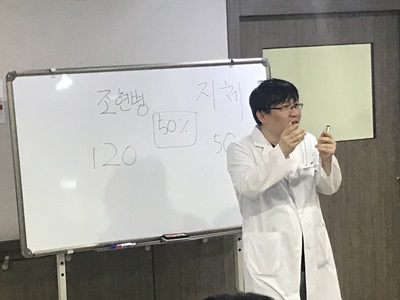 조현병 지체
50%
120 50